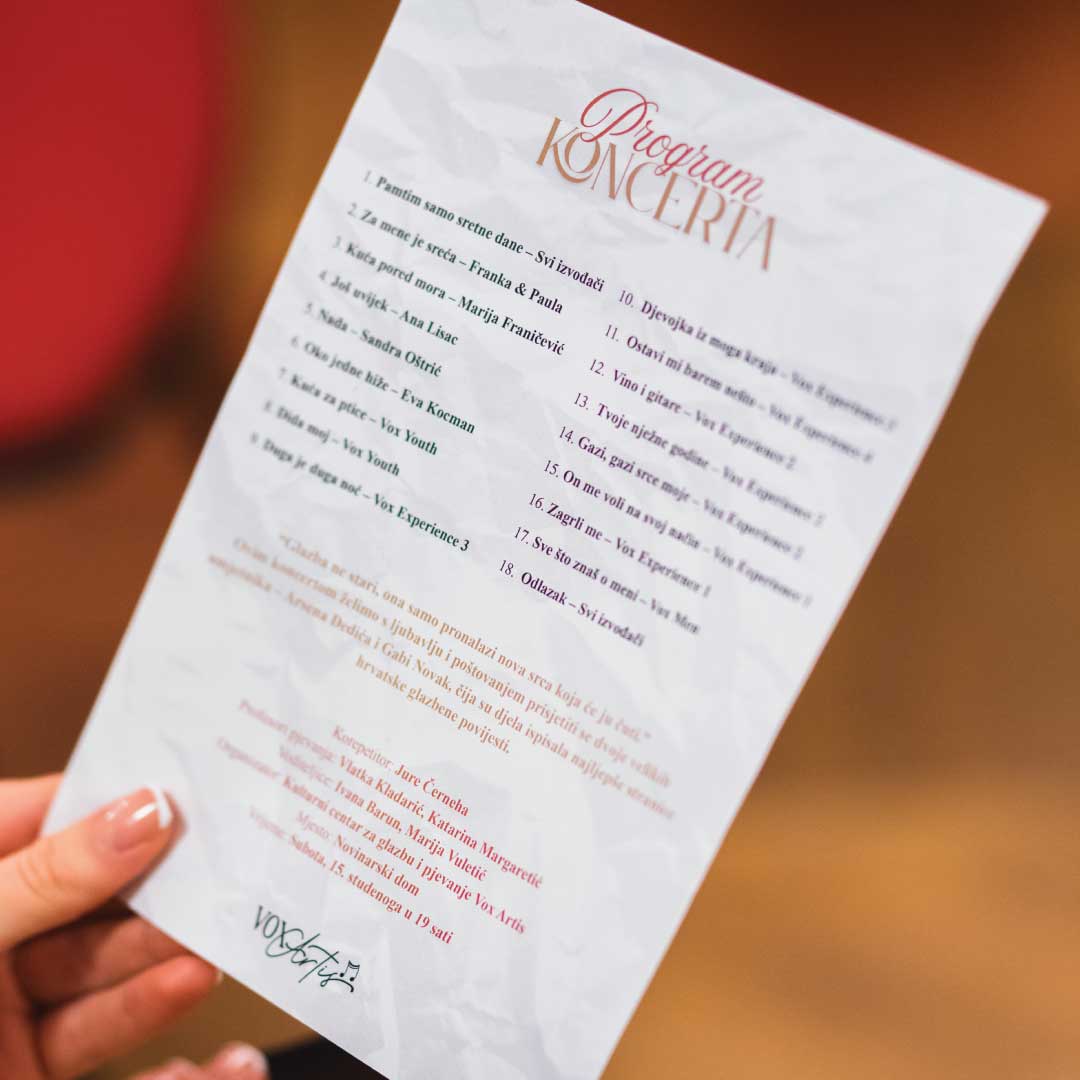 Program
KONCERTA
1. Pamtim samo sretne dane – Svi izvođači
2. Za mene je sreća – Franka & Paula
3. Kuća pored mora – Marija Franičević
4. Još uvijek – Ana Lisac
5. Nada – Sandra Oštrić
6. Oko jedne hiže – Eva Kocman
7. Kuća za ptice – Vox Youth
8. Dida moj – Vox Youth
9. Duga je duga noć – Vox Experience 3
10. Djevojka iz moga kraja – Vox Experience
11. Ostavi mi barem nešto – Vox Experience
12. Vino i gitare – Vox Experience 2
13. Tvoje nježne godine – Vox Experience 2
14. Gazi, gazi srce moje – Vox Experience 2
15. On me voli na svoj način – Vox Experience 1
16. Zagrli me – Vox Experience 1
17. Sve što znaš o meni – Vox Men
18. Odlazak – Svi izvođači
"Glazba ne stari, ona samo pronalazi nova srca koja će ju čuti."
Ovim koncertom želimo s ljubavlju i poštovanjem prisjetiti se dvoje velikih
umjetnika – Arsena Dedića i Gabi Novak, čija su djela ispisala najljepše stranice
hrvatske glazbene povijesti.
Korepetitor: Jure Černeha
Profesori pjevanja: Vlatka Kladarić, Katarina Margaretić
Voditeljice: Ivana Barun, Marija Vuletić
Organizator: Kulturni centar za glazbu i pjevanje Vox Artis
Mjesto: Novinarski dom
Vrijeme: Subota, 15. studenoga u 19 sati
VOX Artis